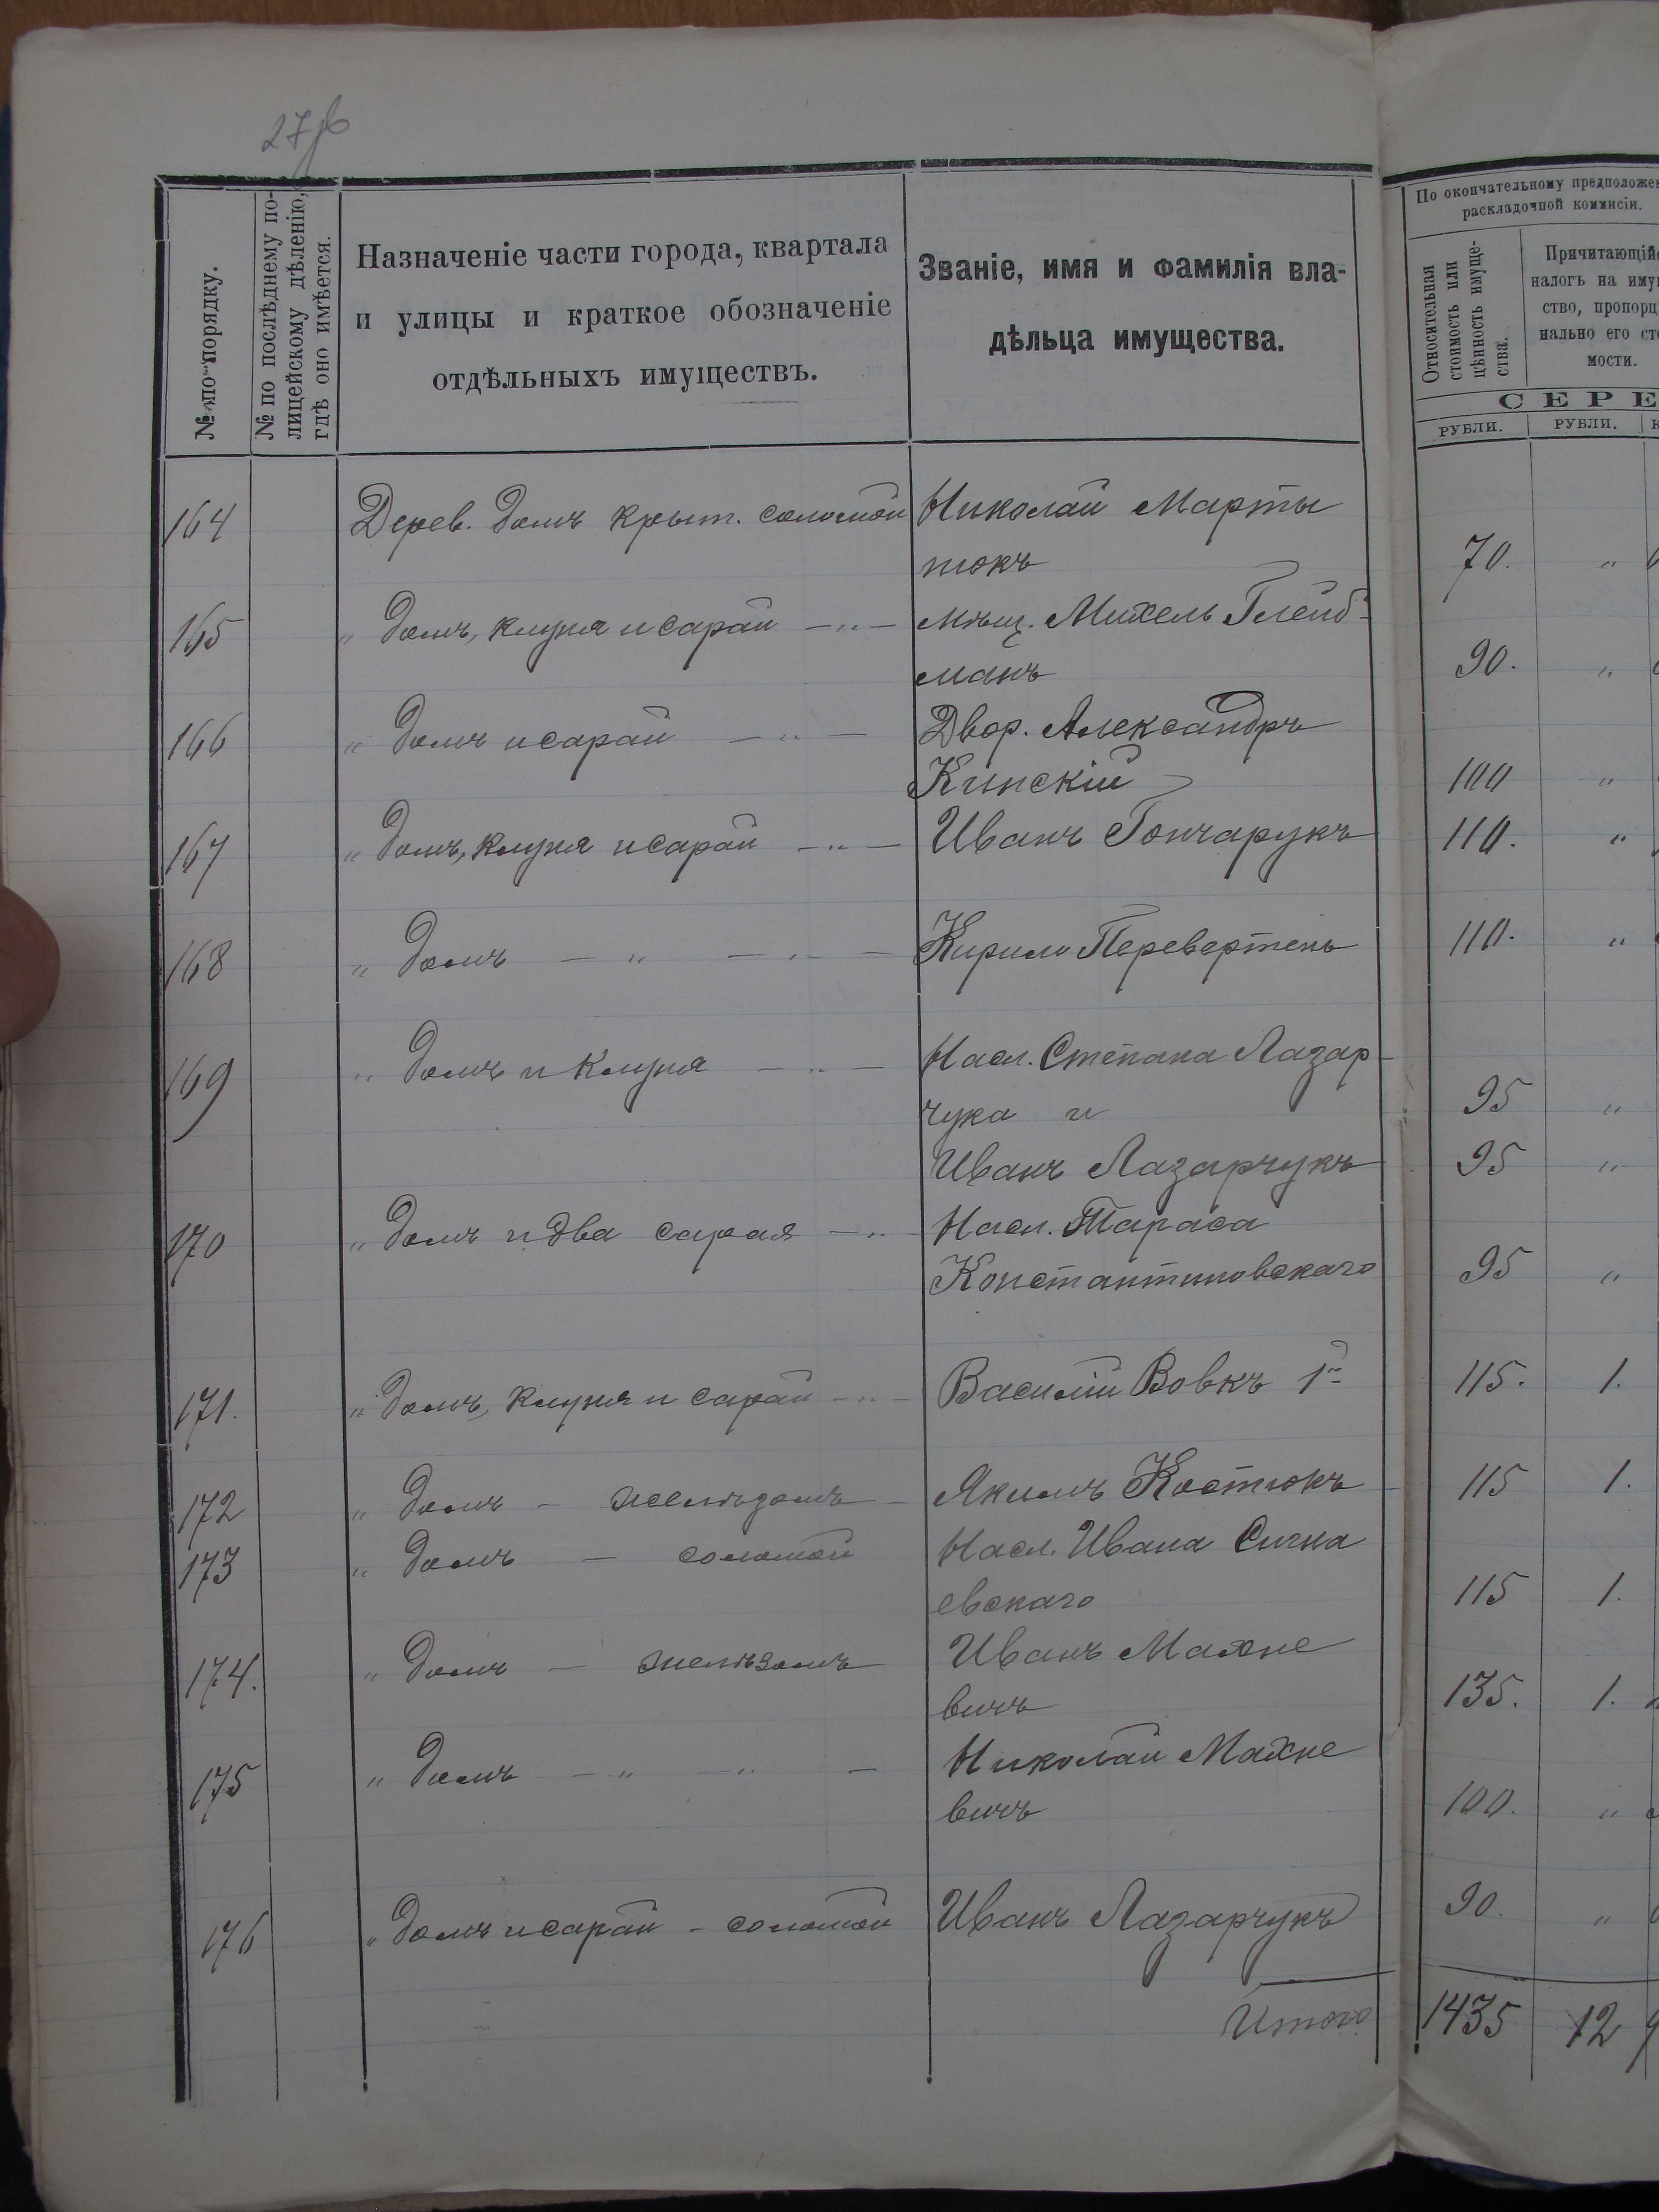 27
№ по порядку.
№ по послѣднему по-
лицейскому дѣленію,
гдѣ оно имѣется.
Назначеніе части города, квартала
и улицы и краткое обозначеніе
отдѣльныхъ имуществъ.
Званіе, имя и фамилія вла-
дѣльца имущества.
По окончательному предположен
раскладочной коммисіи.
Относительная
стоимость или
цѣнность имуще-
ства.
Причитающійс
налогъ на иму
ство, пропорц
нально его сто
мости.
СЕРЕ
РУБЛИ. РУБЛИ. К
164 Дерев. домъ крыт. соломой Николай Марты
нюкъ 70. "
165 " домъ, клуня и сарай — " — мѣщ. Михель Глейб-
манъ 90. "
166 " домъ и сарай — " — Двор. Александръ
Кинскій 100 "
167 " домъ, клуня и сарай — " — Иванъ Гончарукъ 110. "
168 " домъ — " — " — Кирило Перевертень 110. "
169 " домъ и клуня — " — Насл. Степана Лазар-
чука и 95 "
Иванъ Лазарчукъ 95 "
170 " домъ и два сарая — " Насл. Тараса
Константиновскаго 95 "
171. " домъ, клуня и сарай — " — Василій Вовкъ 1й 115. 1.
172 " домъ — желѣзомъ — Якимъ Костюкъ 115 1.
173 " домъ — соломой Насл. Ивана Сигна
евскаго 115 1.
174. " домъ — желѣзомъ Иванъ Махне
вичъ 135. 1.
175 " домъ — " — " — Николай Махне
вичъ 100. "
176 " домъ и сарай — соломой Иванъ Лазарчукъ 90. "
Итого 1435 12